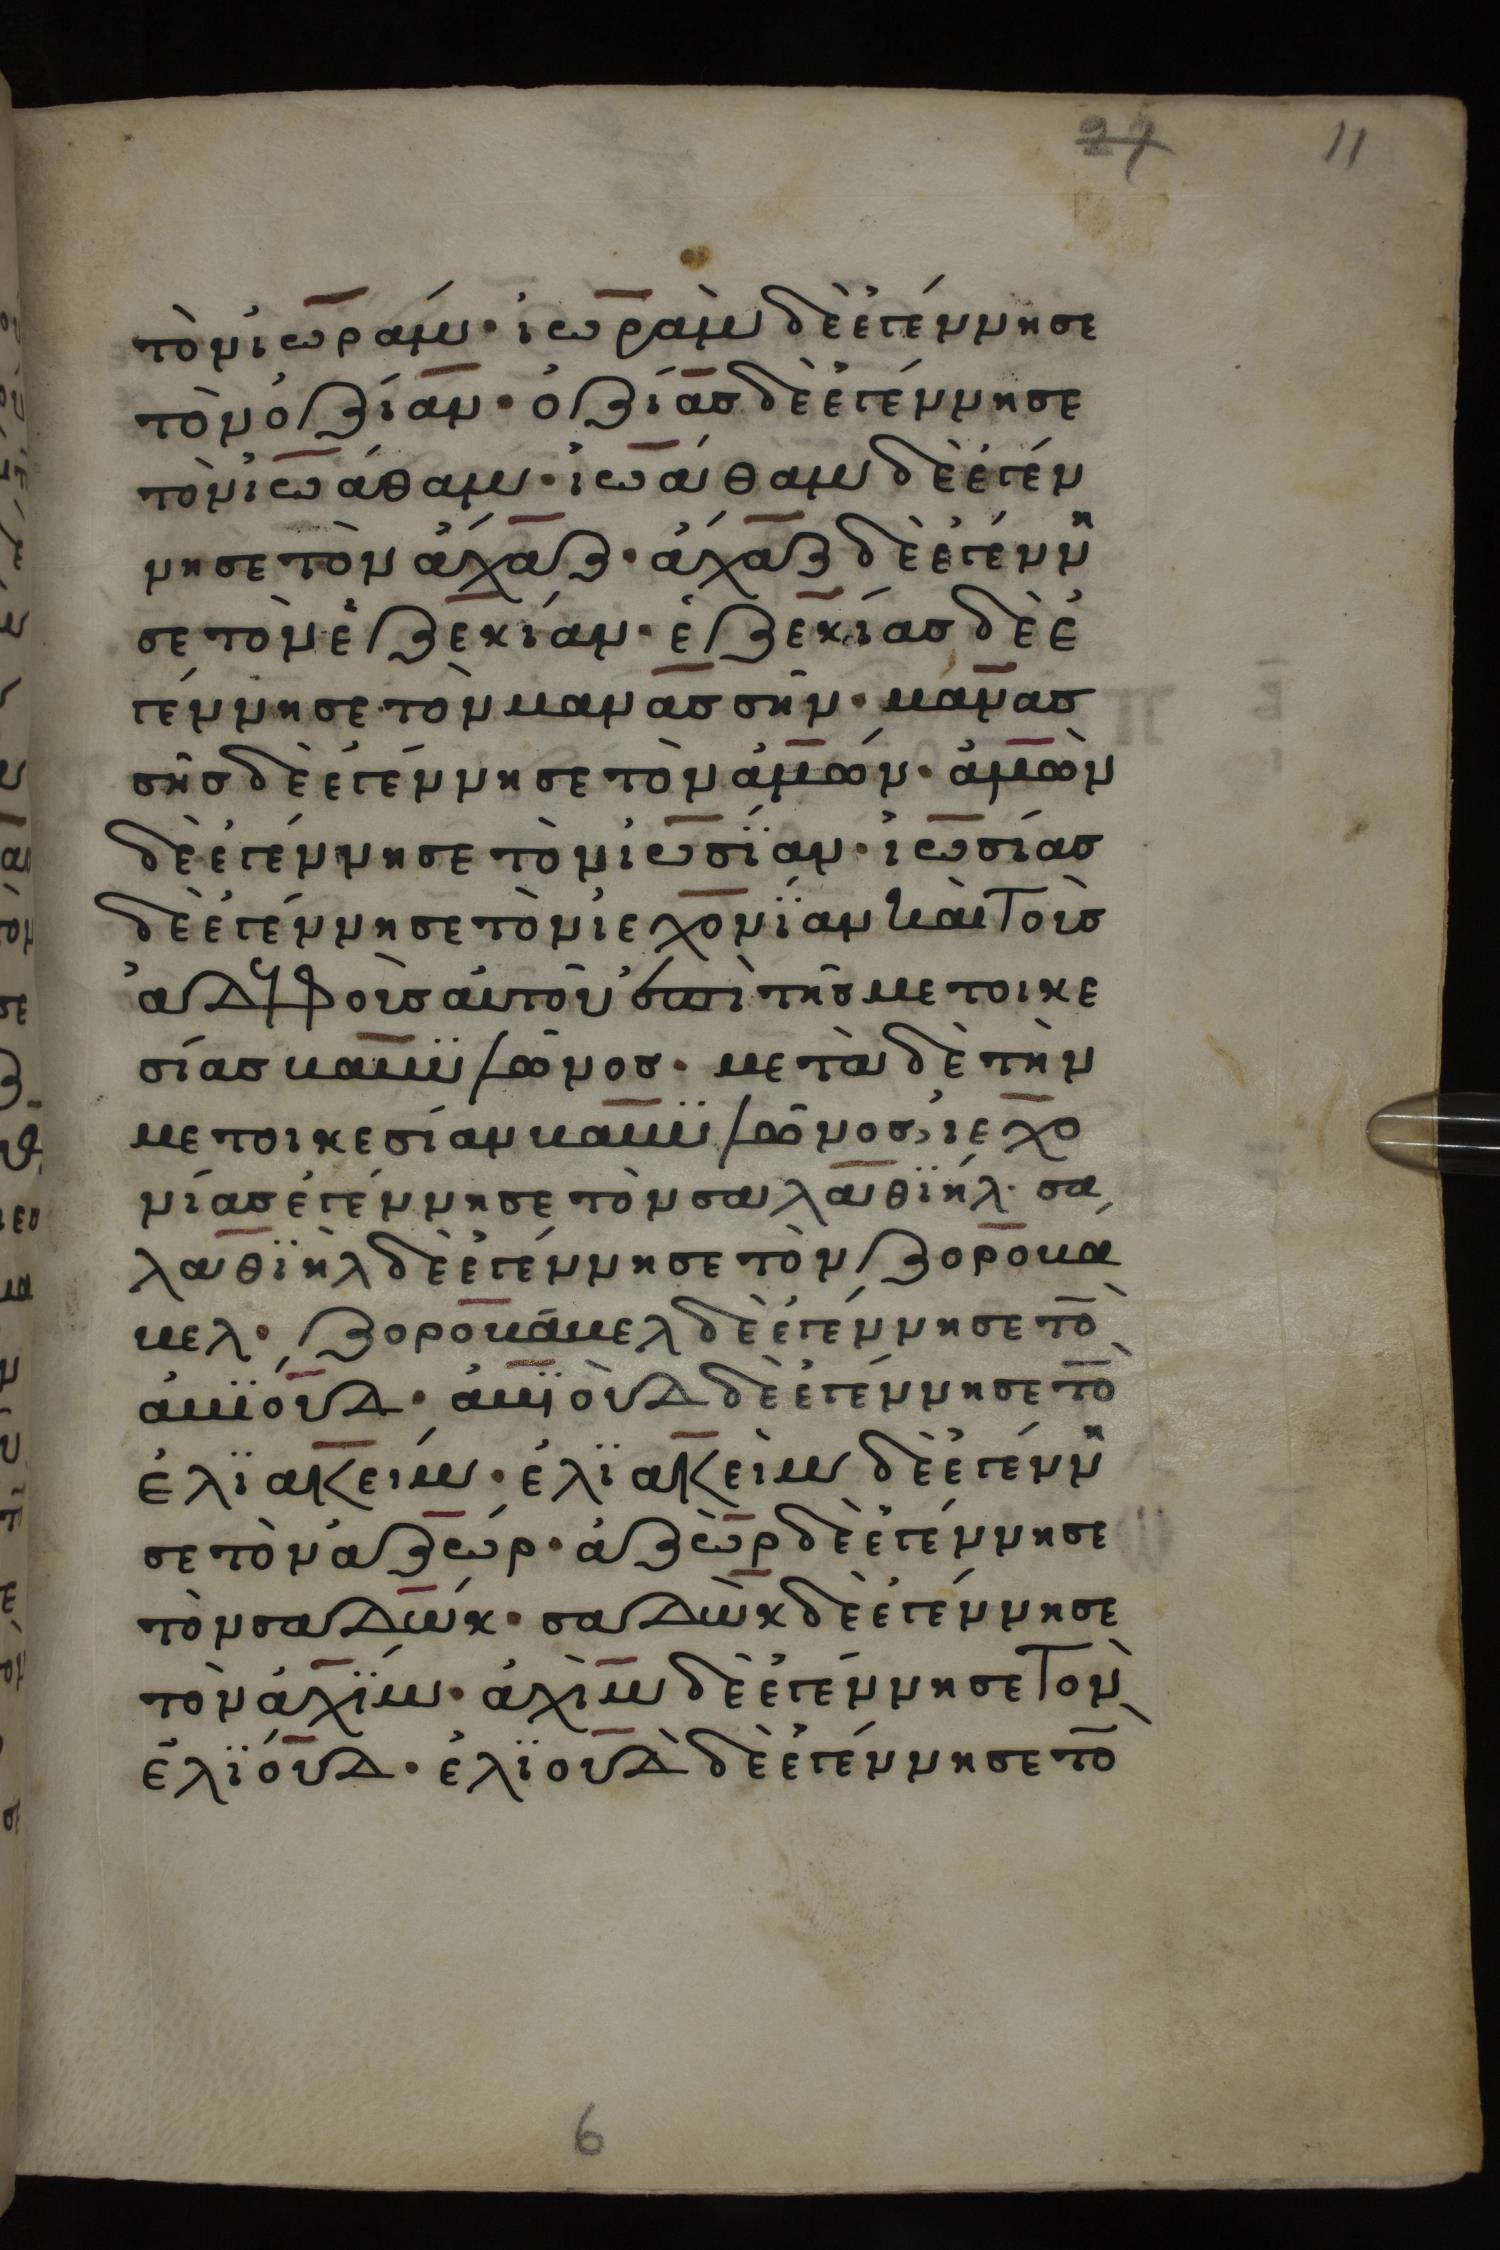 27 11
τὸν ἰωράμ· ἰωρὰμ δὲ ἐγέννησε
τὸν ὀζίαν· ὀζίας δὲ ἐγέννησε
τὸν ἰωάθαμ· ἰωάθαμ δὲ ἐγέν
νησε τὸν ἀχάζ· ἀχάζ δὲ ἐγέννη
σε τὸν ἐζεκίαν· ἐζεκίας δὲ ἐ
γέννησε τὸν μανασσῆν· μανασ
σῆς δὲ ἐγέννησε τὸν ἀμών· ἀμὼν
δὲ ἐγέννησε τὸν ἰωσΐαν· ἰωσίας
δὲ ἐγέννησε τὸν ἰεχονΐαν καὶ τοὺς
ἀδελφοὺς αὐτοῦ ἐπὶ τῆς μετοικε
σίας βαβυλῶνος· μετὰ δὲ τὴν
μετοικεσίαν βαβυλῶνος, ἰεχο
νίας ἐγέννησε τὸν σαλαθϊήλ· σα
λαθϊὴλ δὲ ἐγέννησε τὸν ζοροβά
βελ· ζοροβάβελ δὲ ἐγέννησε τὸ̅
ἀβϊούδ· ἀβϊοὺδ δὲ ἐγέννησε τὸ̅
ἐλϊακείμ· ἐλϊακεὶμ δὲ ἐγέννη
σε τὸν ἀζώρ· ἀζὼρ δὲ ἐγέννησε
τὸν σαδώκ· σαδὼκ δὲ ἐγέννησε
τὸν ἀχΐμ· ἀχὶμ δὲ ἐγέννησε τὸν
ἐλϊούδ· ἐλϊοὺδ δὲ ἐγέννησε τὸ̅
6